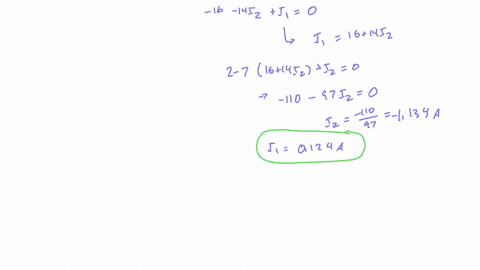 -16 -14I₂ + I₁ = 0
↳ I₁ = 16+14I₂
2-7 (16+14I₂) + I₂ = 0
→ -110 - 97I₂ = 0
I₂ = -110/97 = -1.134 A
I₁ = 0.124 A